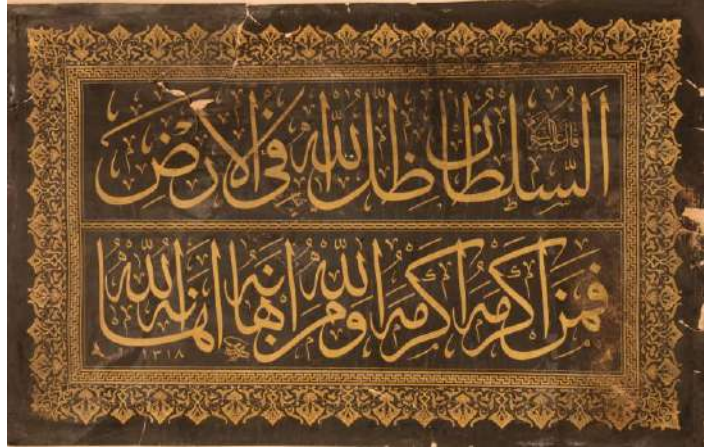 السلطان ظل الله فى الارض
فمن اكرمه اكرمه الله ومن اهانه اهانه الله
١٣١٨